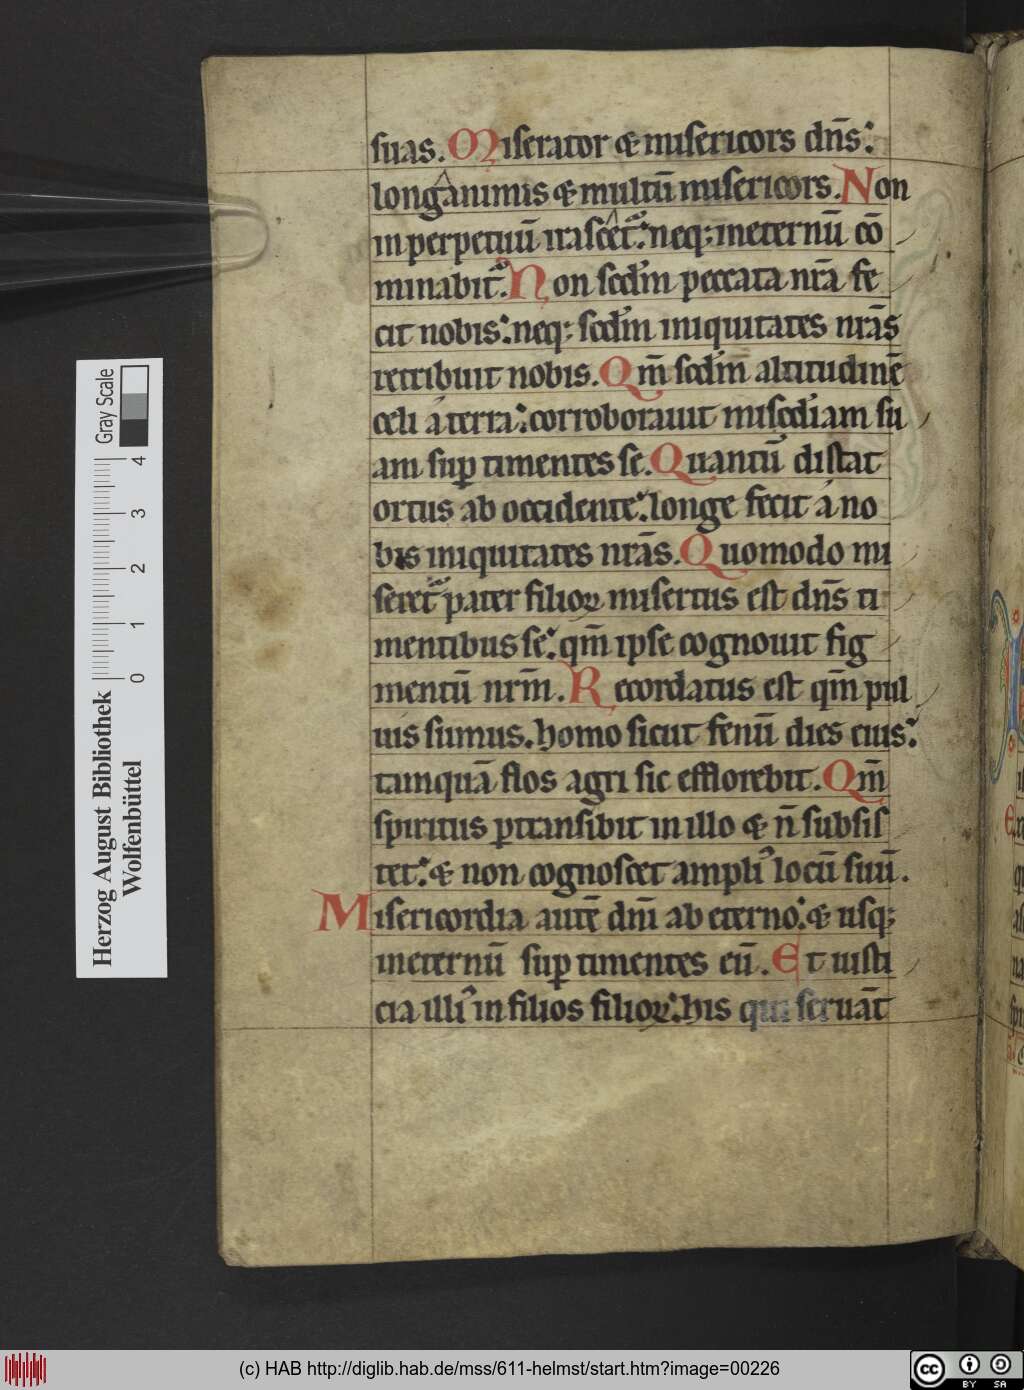 suas. Miserator & misericors dn̄s:
longanimis & multū misericors. Non
in perpetuū irascet᷑: neq; in eternū cō
minabit᷑. Non scd'm peccata nr̄a fe
cit nobis: neq; scd'm iniquitates nr̄as
retribuit nobis. Qm̄ scd'm altitudinē
celi a terra: corroborauit misc̄diam su
am sup timentes se. Quantū distat
ortus ab occidente: longe fecit a no
bis iniquitates nr̄as. Quomodo mi
seret᷑ pater filioꝝ misertus est dn̄s ti
mentibus se: qm̄ ipse cognouit fig
mentū nr̄m. Recordatus est qm̄ pul
uis sumus. homo sicut fenū dies eius:
tanquā flos agri sic efflorebit. Qm̄
spiritus ꝑtransibit in illo & n̄ subsis
tet: & non cognoscet ampli᷒ locū suū.
Misericordia autē dn̄i ab eterno: & usq;
in eternū sup timentes eū. Et iusti
cia illi᷒ in filios filioꝝ: his qui seruāt
Herzog August Bibliothek
Wolfenbüttel
0 1 2 3 4
Gray Scale
(c) HAB http://diglib.hab.de/mss/611-helmst/start.htm?image=00226
cc BY SA